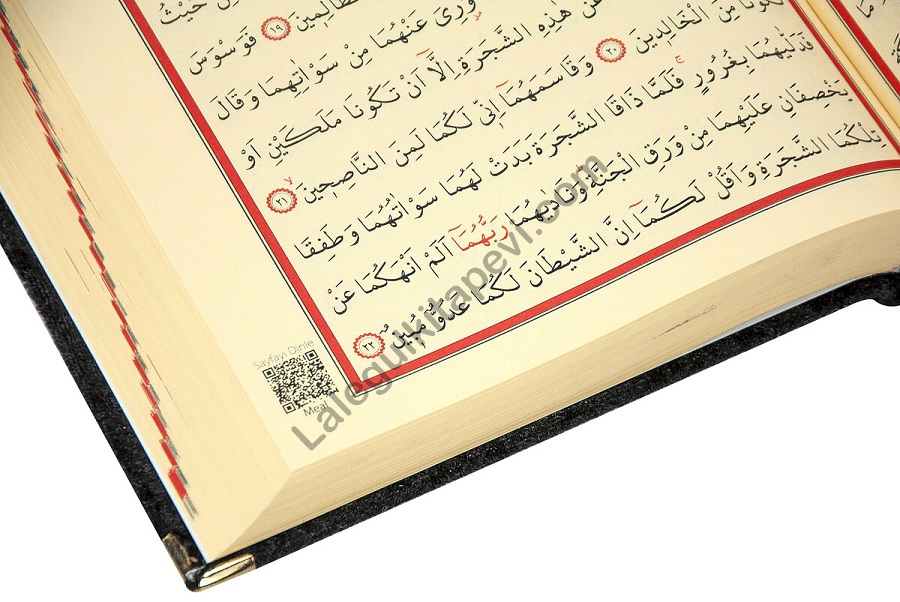 حَيْثُ
الظَّالِمِينَ ﴿١٩﴾ فَوَسْوَسَ
وُرِيَ عَنْهُمَا مِنْ سَوْاٰتِهِمَا وَقَالَ
عَنْ هٰذِهِ الشَّجَرَةِ اِلَّٓا اَنْ تَكُونَا مَلَكَيْنِ اَوْ
تَكُونَا مِنَ الْخَالِدِينَ ﴿٢٠﴾ وَقَاسَمَهُمَٓا اِنّ۪ي لَكُمَا لَمِنَ النَّاصِح۪ينَ ﴿٢١﴾
فَدَلّٰيهُمَا بِغُرُورٍۚ فَلَمَّا ذَاقَا الشَّجَرَةَ بَدَتْ لَهُمَا سَوْاٰتُهُمَا وَطَفِقَا
يَخْصِفَانِ عَلَيْهِمَا مِنْ وَرَقِ الْجَنَّةِۜ وَنَادٰيهُمَا رَبُّهُمَٓا اَلَمْ اَنْهَكُمَا عَنْ
تِلْكُمَا الشَّجَرَةِ وَاَقُلْ لَكُمَٓا اِنَّ الشَّيْطَانَ لَكُمَا عَدُوٌّ مُب۪ينٌ ﴿٢٢﴾
Sayfayı Dinle
Meal
Lalegulkitapevi.com